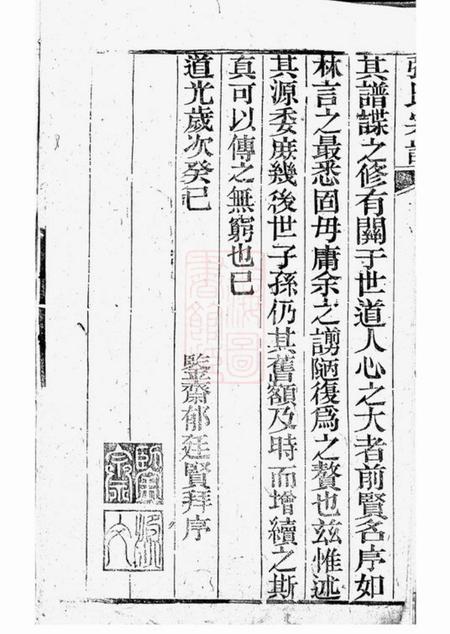 張氏宗譜
其譜諜之修有關于世道人心之大者前賢名序如
林言之最悉固毋庸余之謭陋復為之贅也茲惟述
其源委庶幾後世子孫仍其舊額及時而增續之斯
真可以傳之無窮也已
道光歲次癸巳
鑒齋郁廷賢拜序